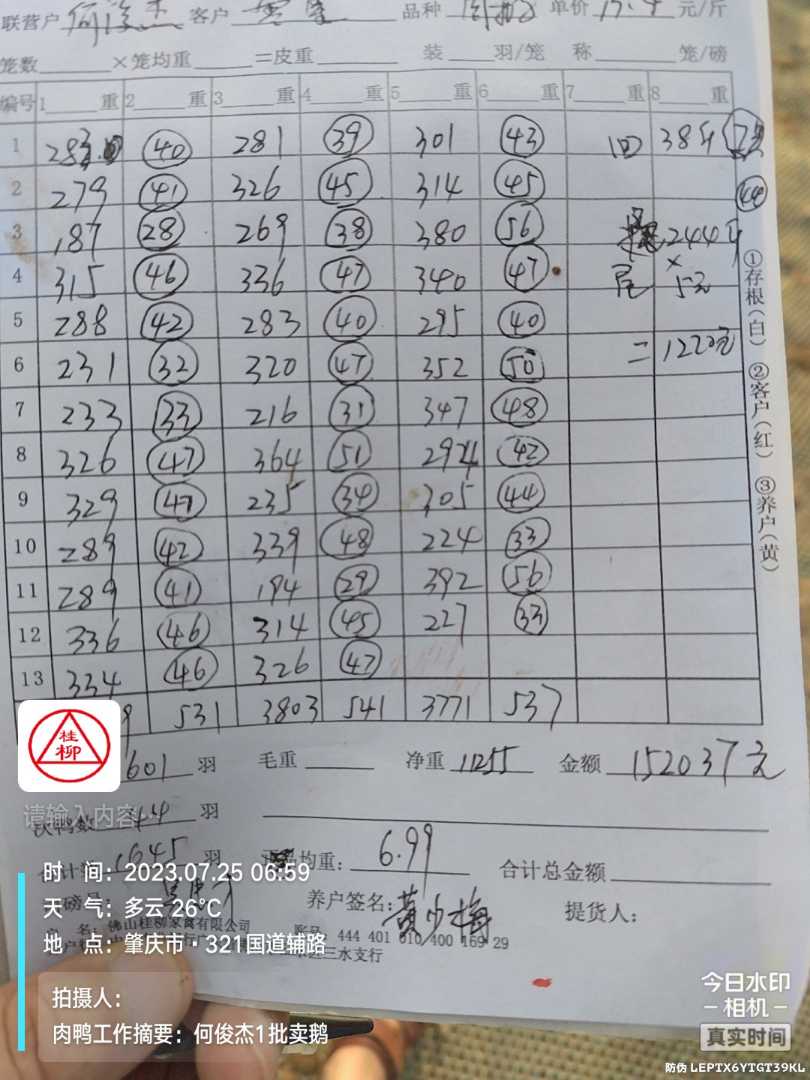 联营户 何俊杰 客户 品种 单价 元/斤
笼数 ×笼均重 =皮重 装 羽/笼 称 笼/磅
编号 1 重 2 重 3 重 4 重 5 重 6 重 7 重 8 重
1 283 40 281 39 301 43 回 38斤
2 279 41 326 45 314 45 44
3 187 28 269 38 380 56 244斤
4 315 46 336 47 340 47 尾 × 5元
5 288 42 283 40 295 40
6 231 32 320 47 352 50 = 1220元
7 233 33 216 31 347 48
8 326 47 364 51 292 42
9 329 47 235 34 305 44
10 289 42 339 48 224 33
11 289 41 194 29 392 56
12 336 46 314 45 227 33
13 334 46 326 47
531 3803 541 3771 537
①存根(白) ②客户(红) ③养户(黄)
桂柳
1601 羽 毛重 净重 11255 金额 152037元
请输入内容
鸭数 44 羽
1645 羽 均重: 6.99 合计总金额
磅员: 养户签名: 黄少梅 提货人:
名: 佛山桂柳家禽有限公司 444 401 010 400 169 29
三水支行
时 间: 2023.07.25 06:59
天 气: 多云 26°C
地 点: 肇庆市·321国道辅路
拍摄人:
肉鸭工作摘要: 何俊杰1批卖鹅
今日水印
相机
真实时间
防伪 LEPTX6YTGT39KL